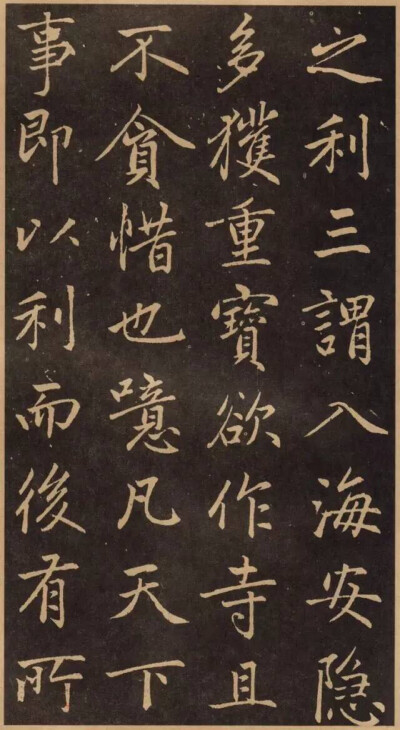 之利三謂入海安隱
多獲重寶欲作寺且
不貪惜也噫凡天下
事即以利而後有所